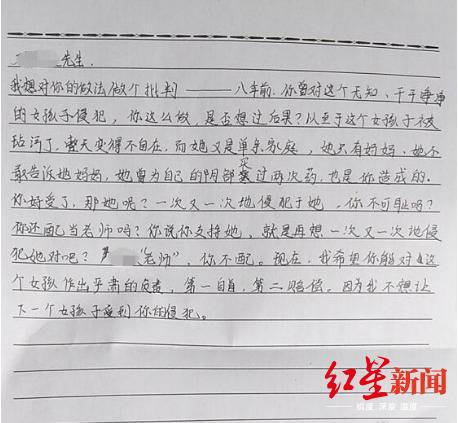 先生.
我想对你的做法做个批判——八年前.你曾对这个无知、干干净净
的女孩子侵犯，你这么做，是否想过后果？从至于这个女孩子被
玷污了.整天变得不自在.而她又是单亲家庭，她只有妈妈、她不
敢告诉她妈妈，她曾为自己的阴部买过两次药，也是你造成的.
你好受了，那她呢？一次又一次地侵犯于她.你不可耻吗？
你还配当老师吗？你说你支持她，就是再想一次又一次地侵
犯她对吧？“老师”，你不配。现在，我希望你能对这
个女孩作出严肃的负责，第一自首，第二赔偿。因为我不想让
下一个女孩子受到你的侵犯。
红星新闻
锐度 深度 温度